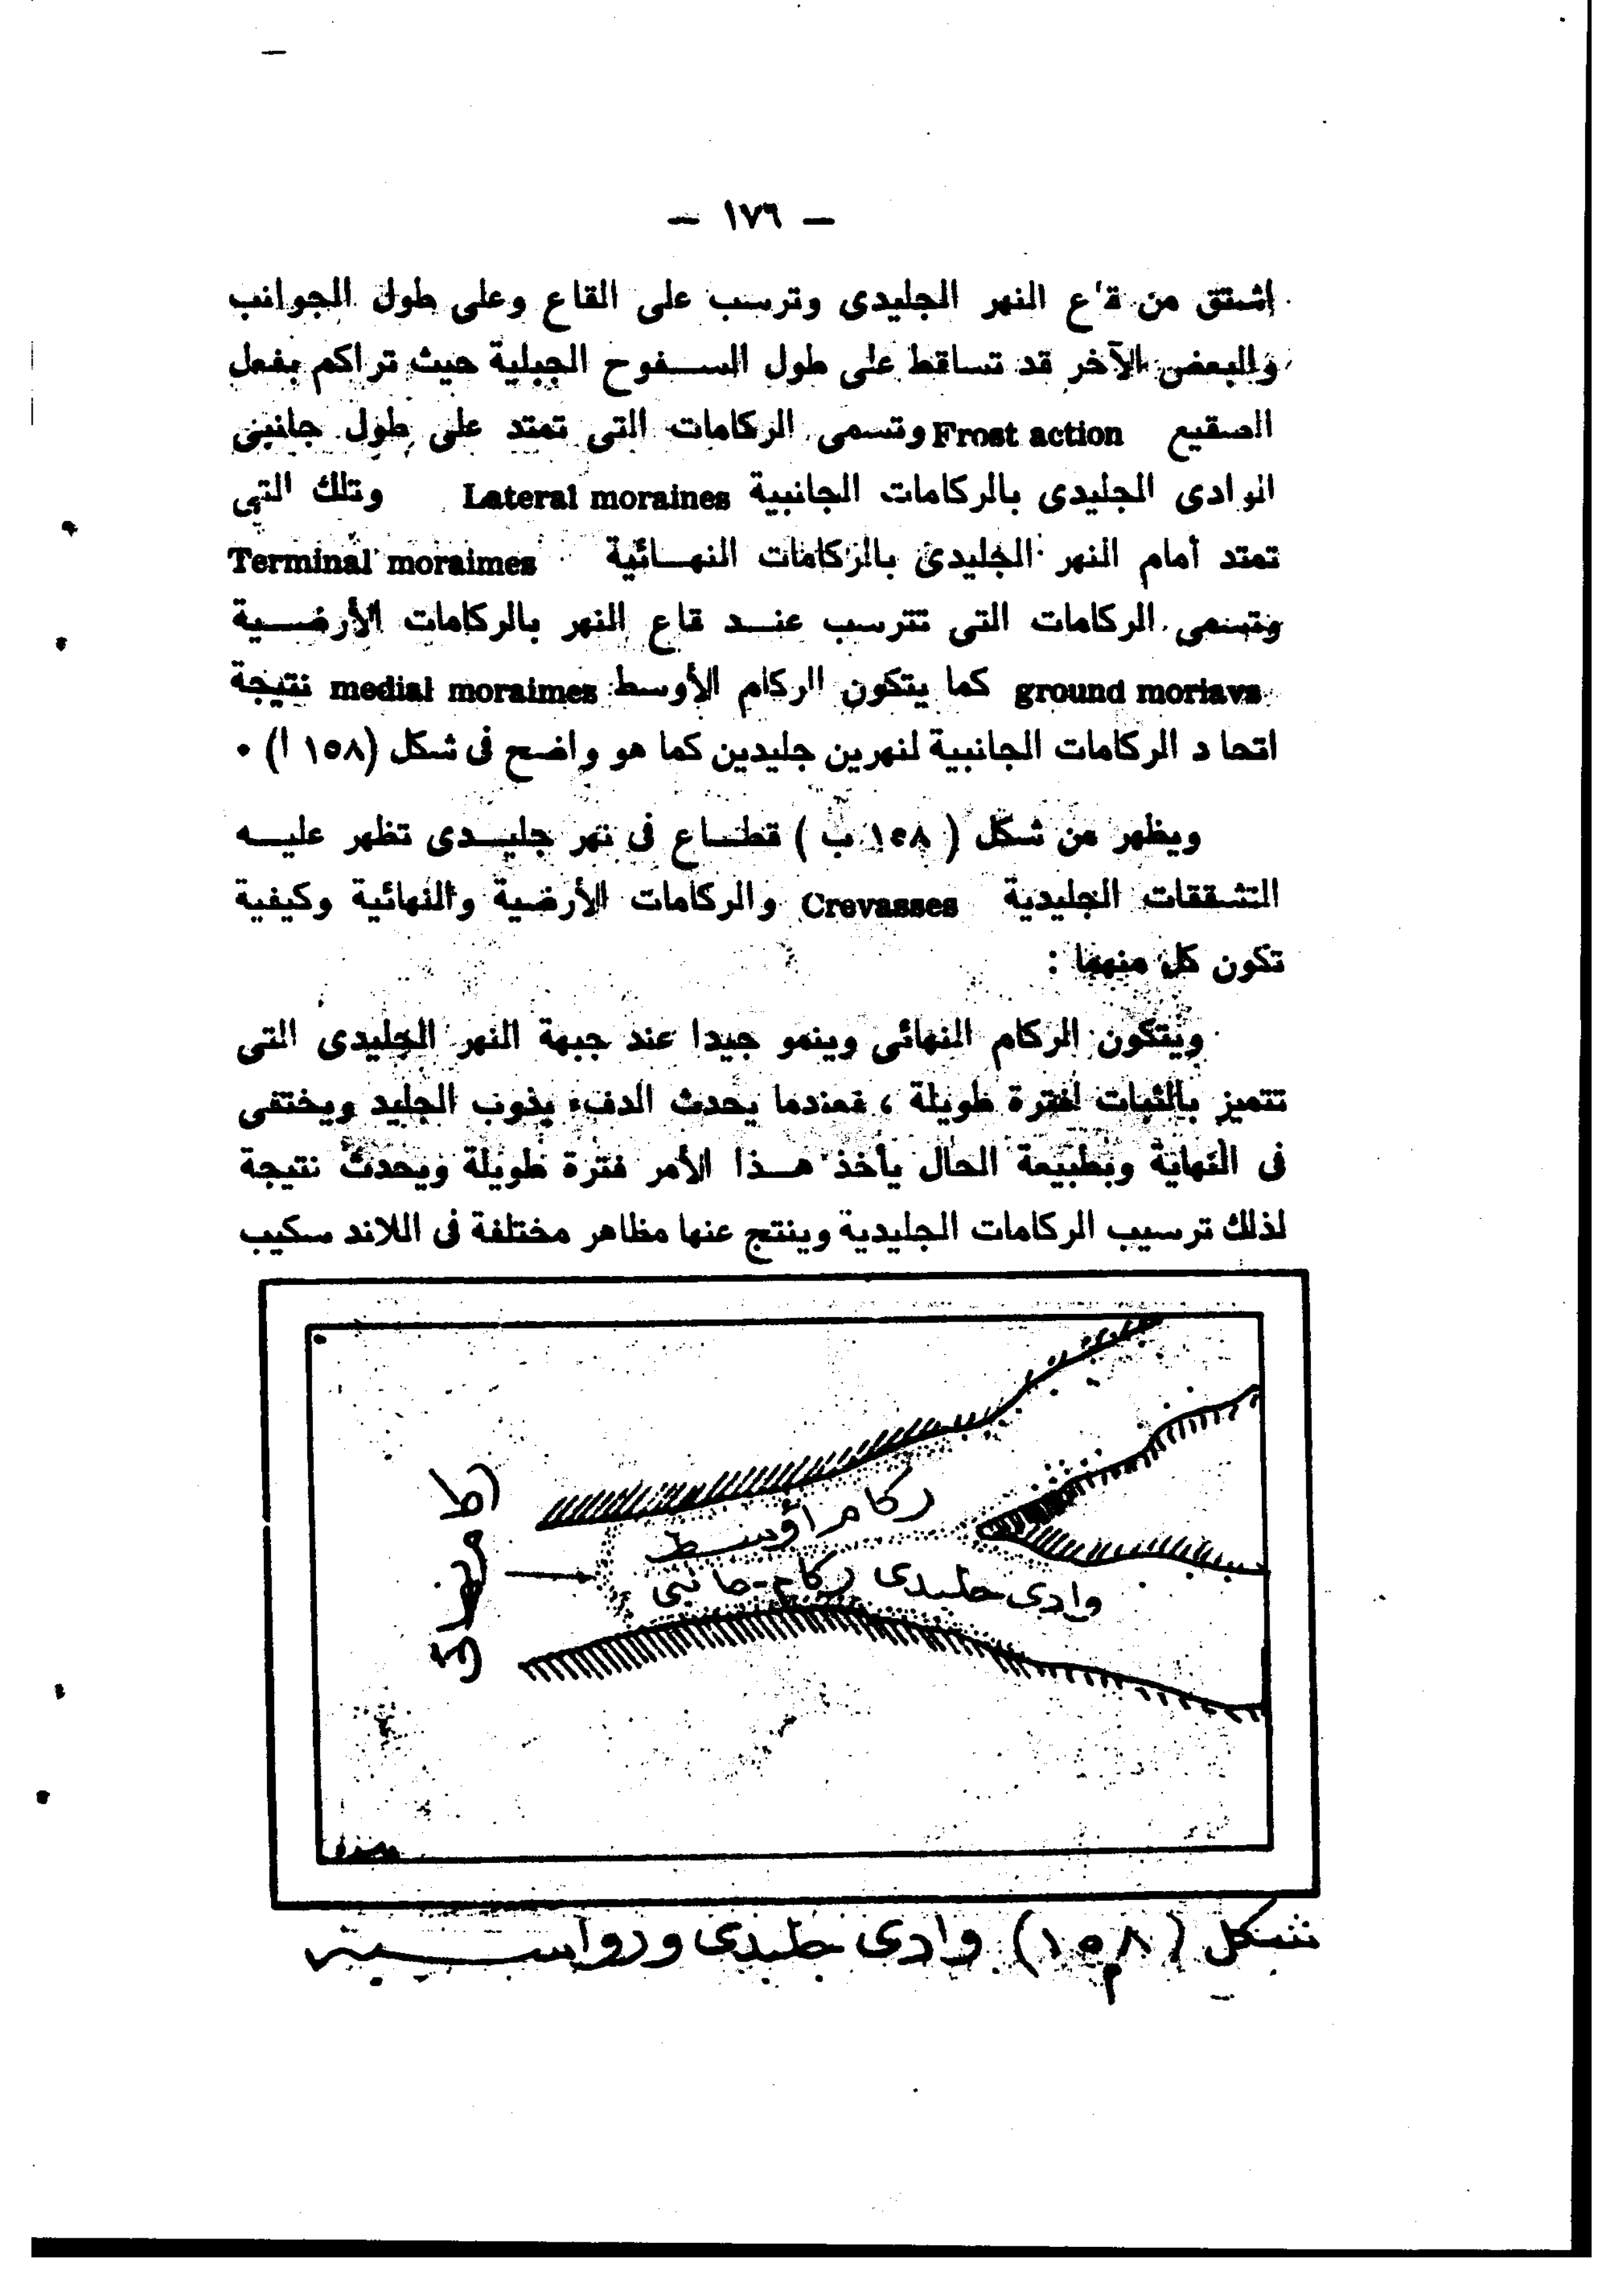 — ١٧٦ —
اشتق من قاع النهر الجليدى وترسب على القاع وعلى طول الجوانب
والبعض الآخر قد تساقط على طول السفوح الجبلية حيث تراكم بفعل
الصقيع Frost action وتسمى الركامات التى تمتد على طول جانبى
الوادى الجليدى بالركامات الجانبية Lateral moraines وتلك التى
تمتد أمام النهر الجليدى بالركامات النهائية Terminal moraimes
وتسمى الركامات التى تترسب عند قاع النهر بالركامات الأرضية
ground moriavs كما يتكون الركام الأوسط medial moraimes نتيجة
اتحاد الركامات الجانبية لنهرين جليدين كما هو واضح فى شكل (١٥٨ أ) ٠
ويظهر من شكل ( ١٥٨ ب ) قطاع فى نهر جليدى تظهر عليه
التشققات الجليدية Crevasses والركامات الأرضية والنهائية وكيفية
تكون كل منهما :
ويتكون الركام النهائى وينمو جيدا عند جبهة النهر الجليدى التى
تتميز بالثبات لفترة طويلة ، فعندما يحدث الدفء يذوب الجليد ويختفى
فى النهاية وبطبيعة الحال يأخذ هذا الأمر فترة طويلة ويحدث نتيجة
لذلك ترسيب الركامات الجليدية وينتج عنها مظاهر مختلفة فى اللاند سكيب
ركام أوسط
وادى جليدى ركام جانبى
شكل (١٥٨) وادى جليدى ورواسبه